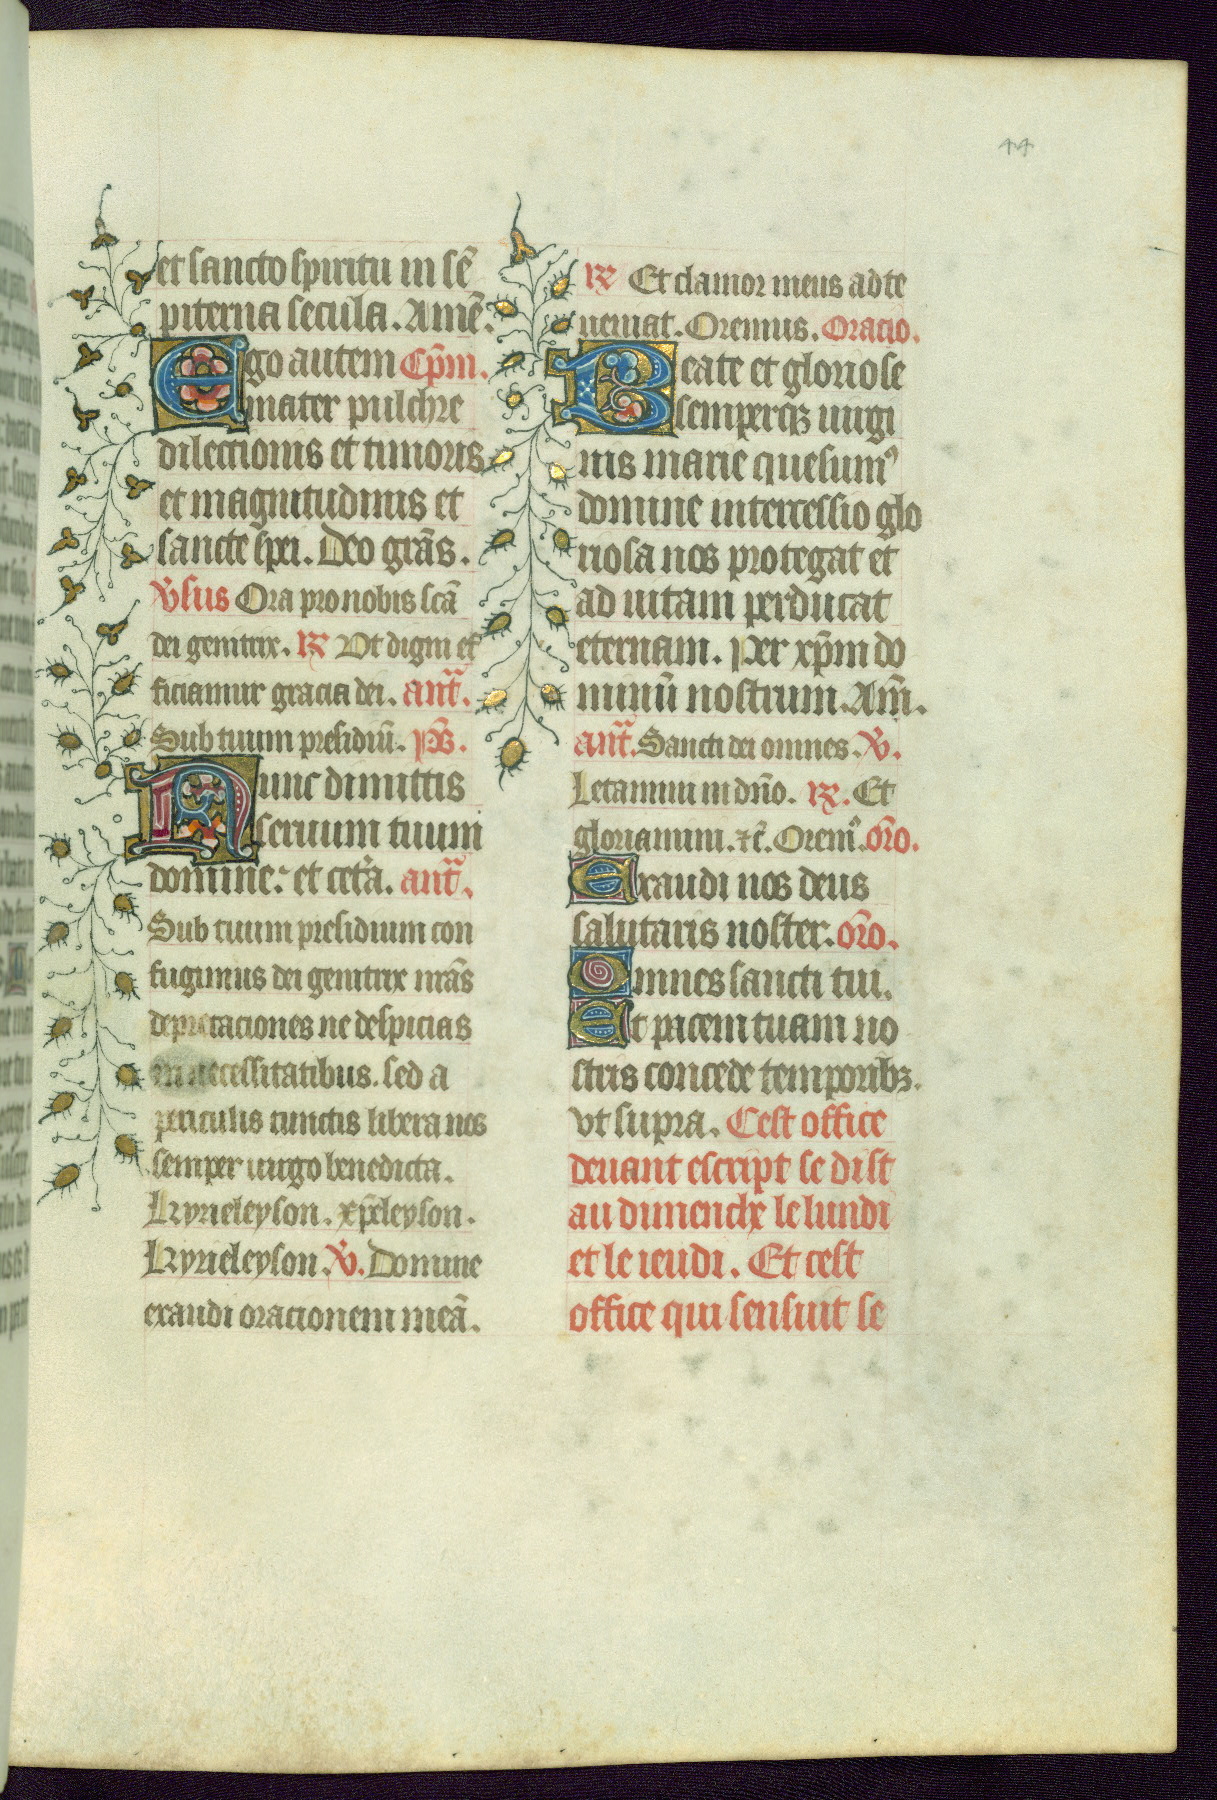 44
et sancto spiritu in sē
piterna secula. Amē.
Ego autem Cp̄m.
mater pulchre
dilectionis et timoris
et magnitudinis et
sancte spei. Deo grās.
V̇sus Ora pro nobis scā
dei genitrix. ℞ Vt digni ef
ficiamur gracia dei. ant̄.
Sub tuum presidiū. p̄s.
Nunc dimittis
seruum tuum
domine: et cet̄a. ant̄.
Sub tuum presidium con
fugimus dei genitrix nrās
deprecaciones ne despicias
in necessitatibus. sed a
periculis cunctis libera nos
semper uirgo benedicta.
Kyrieleyson. xp̄eleyson.
Kyrieleyson. ℣. Domine
exaudi oracionem meā.
℞ Et clamor meus ad te
ueniat. Oremus. Oracio.
Beate et gloriose
semperqꝫ uirgi
nis marie quesumꝰ
domine intercessio glo
riosa nos protegat et
ad uitam perducat
eternam. Per xp̄m do
minū nostrum. Am̄.
ant̄. Sancti dei omnes. ℣.
Letamini in dn̄o. ℞. Et
gloriamini. ⁊c̄. Oremꝰ. oр̄o.
Exaudi nos deus
salutaris noster. or̄o.
Omnes sancti tui.
Et pacem tuam no
stris concede temporibꝫ.
vt supra. Cest office
deuant escript se dist
au dimenche le lundi
et le ieudi. Et cest
office qui sensuit se